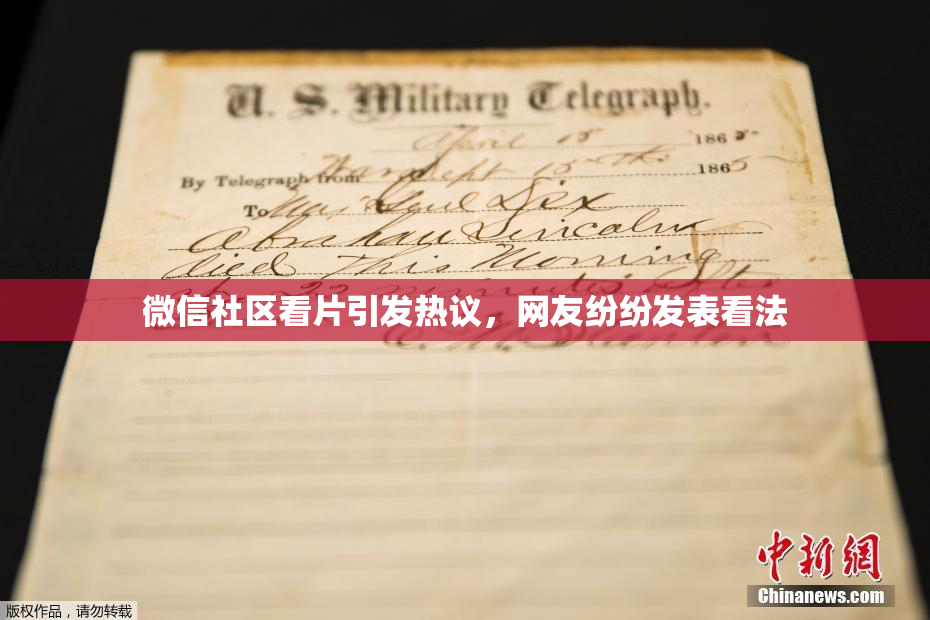 U. S. Military Telegraph.
April 15 1865
By Telegraph from War Dept 15th 1865
To Maj Genl Dix
Abraham Lincoln
died This Morning
at 22 minutes after
微信社区看片引发热议，网友纷纷发表看法
中新网
Chinanews.com
版权作品，请勿转载